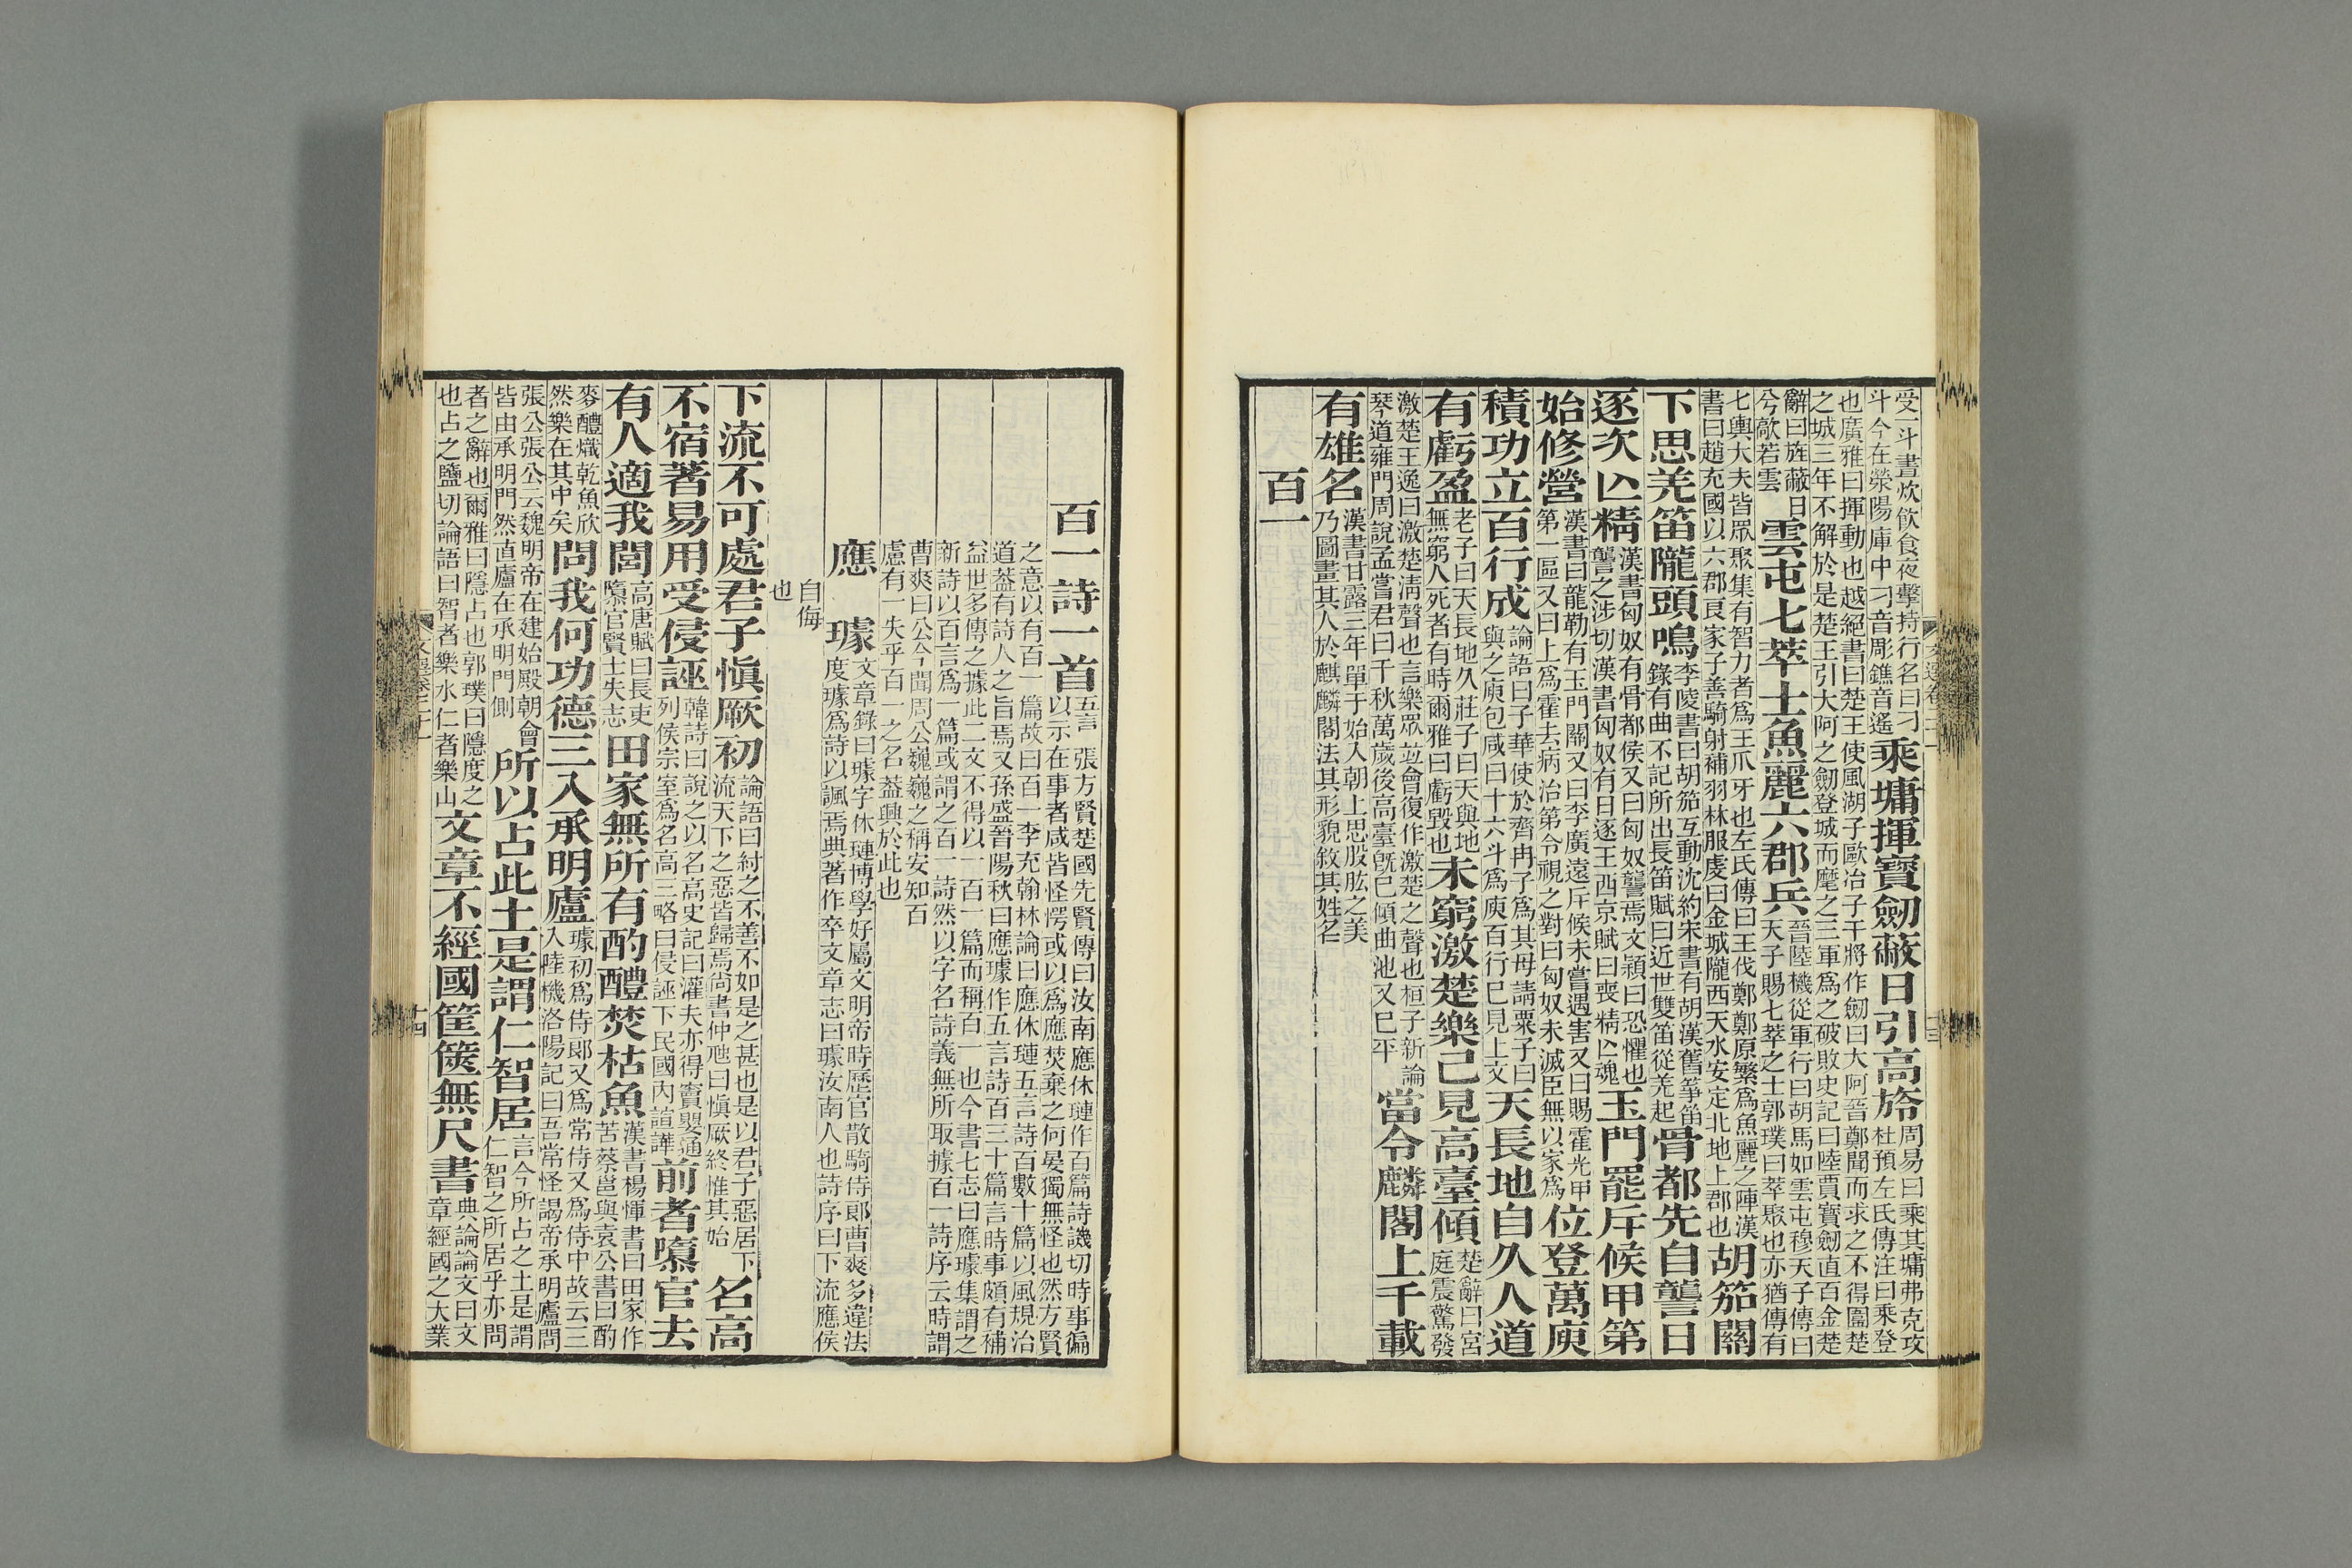 受一斗書炊飲食夜擊持行名曰刁
斗今在滎陽庫中刁音彫鐎音遙
乘墉揮寶劒蔽日引高旍
周易曰乘其墉弗克攻
杜預左氏傳注曰乘登
也廣雅曰揮動也越絕書曰楚王使風湖子歐冶子干將作劒曰大阿晉鄭聞而求之不得圍楚
之城三年不解於是楚王引大阿之劒登城而麾之三軍爲之破敗史記曰陸賈寶劒直百金楚
辭曰旌蔽日
兮敵若雲
雲屯七萃士魚麗六郡兵
晉陸機從軍行曰胡馬如雲屯穆天子傳曰
天子賜七萃之士郭璞曰萃聚也亦猶傳有
七輿大夫皆眾聚集有智力者爲王爪牙也左氏傳曰王伐鄭鄭原繁爲魚麗之陣漢
書曰趙充國以六郡良家子善騎射補羽林服虔曰金城隴西天水安定北地上郡也
胡笳關
下思羌笛隴頭鳴
李陵書曰胡笳互動沈約宋書有胡漢舊箏笛
錄有曲不記所出長笛賦曰近世雙笛從羌起
骨都先自讋日
逐次亾精
漢書匈奴有骨都侯又曰匈奴讋焉文穎曰恐懼也
讋之涉切漢書匈奴有日逐王西京賦曰喪精亾魂
玉門罷斥候甲第
始修營
漢書曰龍勒有玉門關又曰李廣遠斥候未嘗遇害又曰賜霍光甲
第一區又曰上爲霍去病治第令視之對曰匈奴未滅臣無以家爲
位登萬庾
積功立百行成
論語曰子華使於齊冉子爲其母請粟子曰
與之庾包咸曰十六斗爲庾百行已見上文
天長地自久人道
有虧盈
老子曰天長地久莊子曰天與地
無窮人死者有時爾雅曰虧毀也
未窮激楚樂己見高臺傾
楚辭曰宮
庭震驚發
激楚王逸曰激楚清聲也言樂眾並會復作激楚之聲也桓子新論
琴道雍門周說孟嘗君曰千秋萬歲後高臺旣已傾曲池又已平
當令麟閣上千載
有雄名
漢書甘露三年單于始入朝上思股肱之美
乃圖畫其人於麒麟閣法其形貌敘其姓名
百一
百一詩一首
五言 張方賢楚國先賢傳曰汝南應休璉作百篇詩譏切時事徧
以示在事者咸皆怪愕或以爲應焚棄之何晏獨無怪也然方賢
之意以有百一篇故曰百一李充翰林論曰應休璉五言詩百數十篇以風規治
道葢有詩人之旨焉又孫盛晉陽秋曰應璩作五言詩百三十篇言時事頗有補
益世多傳之據此二文不得以一百一篇而稱百一也今書七志曰應璩集謂之
新詩以百言爲一篇或謂之百一詩然以字名詩義無所取據百一詩序云時謂
曹爽曰公今聞周公巍巍之稱安知百
慮有一失乎百一之名葢興於此也
應 璩
文章錄曰璩字休璉博學好屬文明帝時歷官散騎侍郎曹爽多違法
度璩爲詩以諷焉典著作卒文章志曰璩汝南人也詩序曰下流應侯
自侮
也
下流不可處君子愼厥初
論語曰紂之不善不如是之甚也是以君子惡居下
流天下之惡皆歸焉尚書仲虺曰愼厥終惟其始
名高
不宿著易用受侵誣
韓詩曰說之以名高史記曰灌夫亦得竇嬰通
列侯宗室爲名高三略曰侵誣下民國內諠譁
前者隳官去
有人適我閭
高唐賦曰長吏
隳官賢士失志
田家無所有酌醴焚枯魚
漢書楊惲書曰田家作
苦蔡邕與袁公書曰酌
麥醴熾乾魚欣
然樂在其中矣
問我何功德三入承明廬
璩初爲侍郎又爲常侍又爲侍中故云三
入陸機洛陽記曰吾常怪謁帝承明廬問
張公張公云魏明帝在建始殿朝會
皆由承明門然直廬在承明門側
所以占此土是謂仁智居
言今所占之土是謂
仁智之所居乎亦問
者之辭也爾雅曰隱占也郭璞曰隱度之
也占之鹽切論語曰智者樂水仁者樂山
文章不經國筐篋無尺書
典論論文曰文
章經國之大業